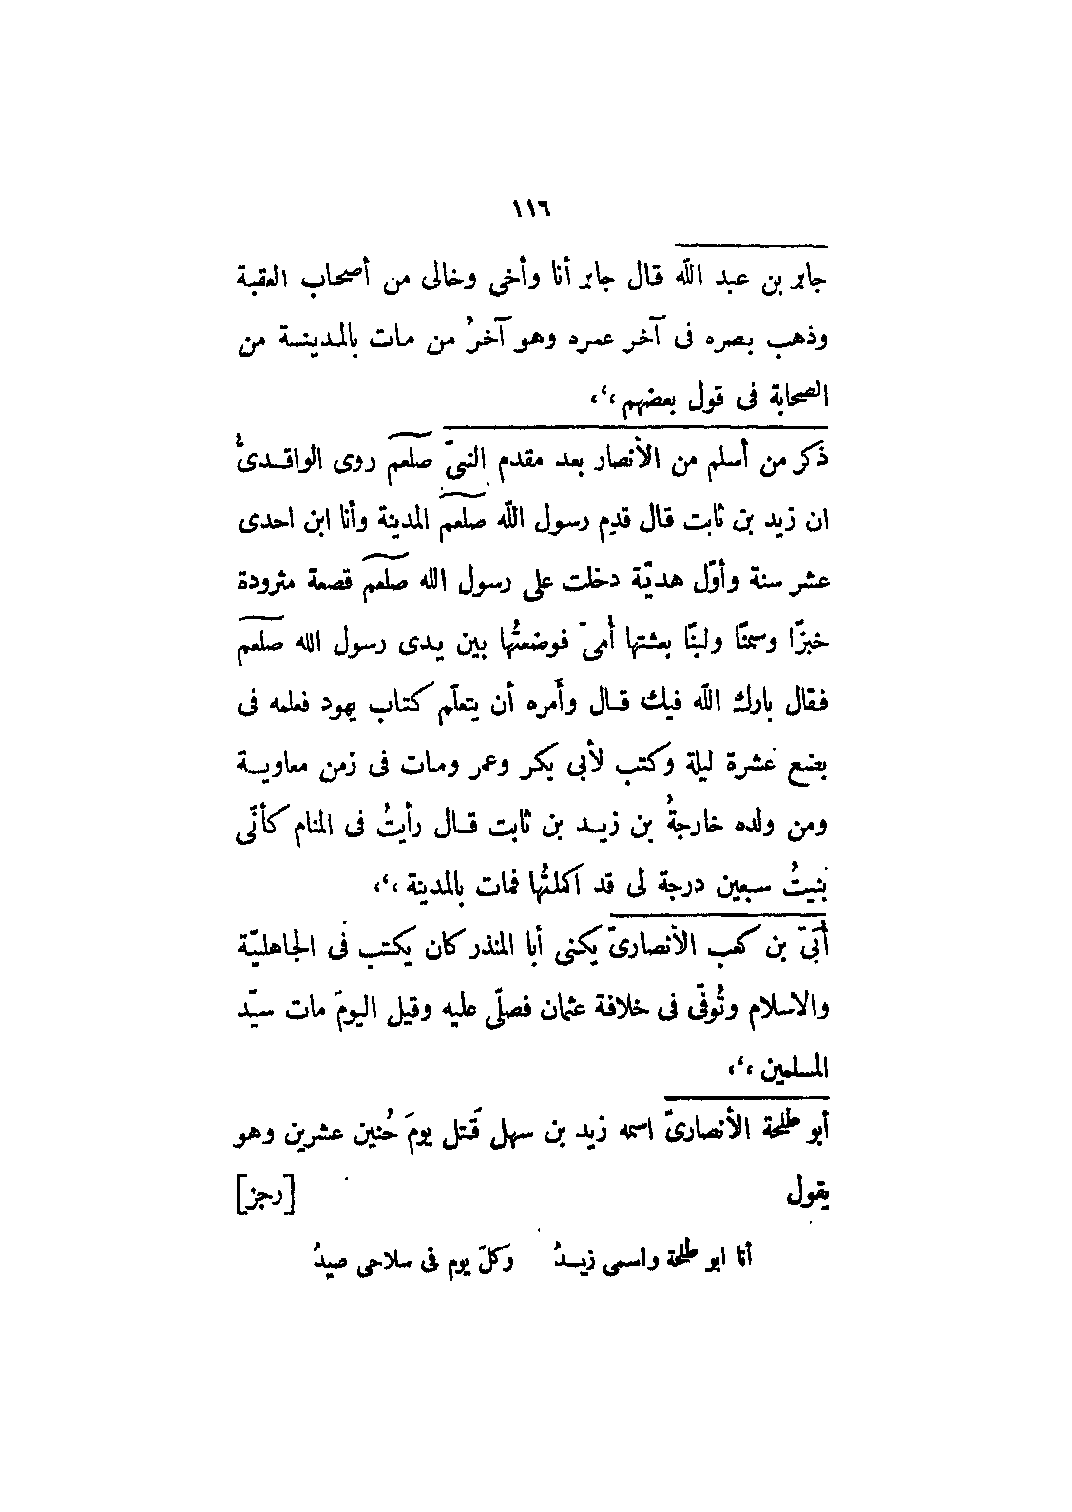 ١١٦
جابر بن عبد اللّه قال جابر أنا وأخى وخالى من أصحاب العقبة
وذهب بصره فى آخر عمره وهو آخرُ من مات بالمدينة من
الصحابة فى قول بعضهم ،‘،
ذكر من أسلم من الأنصار بعد مقدم النبىّ صلعم روى الواقدىُّ
ان زيد بن ثابت قال قدِم رسول اللّه صلعم المدينة وأنا ابن احدى
عشر سنة وأوّل هديّة دخلت على رسول الله صلعم قصعة مثرودة
خبزًا وسمنًا ولبنًا بعثتها أُمىّ فوضعتُها بين يدى رسول الله صلعم
فقال بارك اللّه فيك قال وأَمره أن يتعلّم كتاب يهود فعلمه فى
بضع عشرة ليلة وكتب لأبى بكر وعمر ومات فى زمن معاوية
ومن ولده خارجةُ بن زيد بن ثابت قال رأيتُ فى المنام كأنّى
بنيتُ سبعين درجة لى قد اكملتُها فمات بالمدينة ،‘،
أُبَىّ بن كعب الأنصارىّ يكنى أبا المنذر كان يكتب فى الجاهليّة
والاسلام وتُوفّى فى خلافة عثمان فصلّى عليه وقيل اليومَ مات سيّد
المسلمين ،‘،
أبو طلحة الأنصارىّ اسمه زيد بن سهل قَتل يومَ حُنين عشرين وهو
يقول [رجز]
أنا ابو طلحة واسمى زيدُ وكلّ يوم فى سلاحى صيدُ